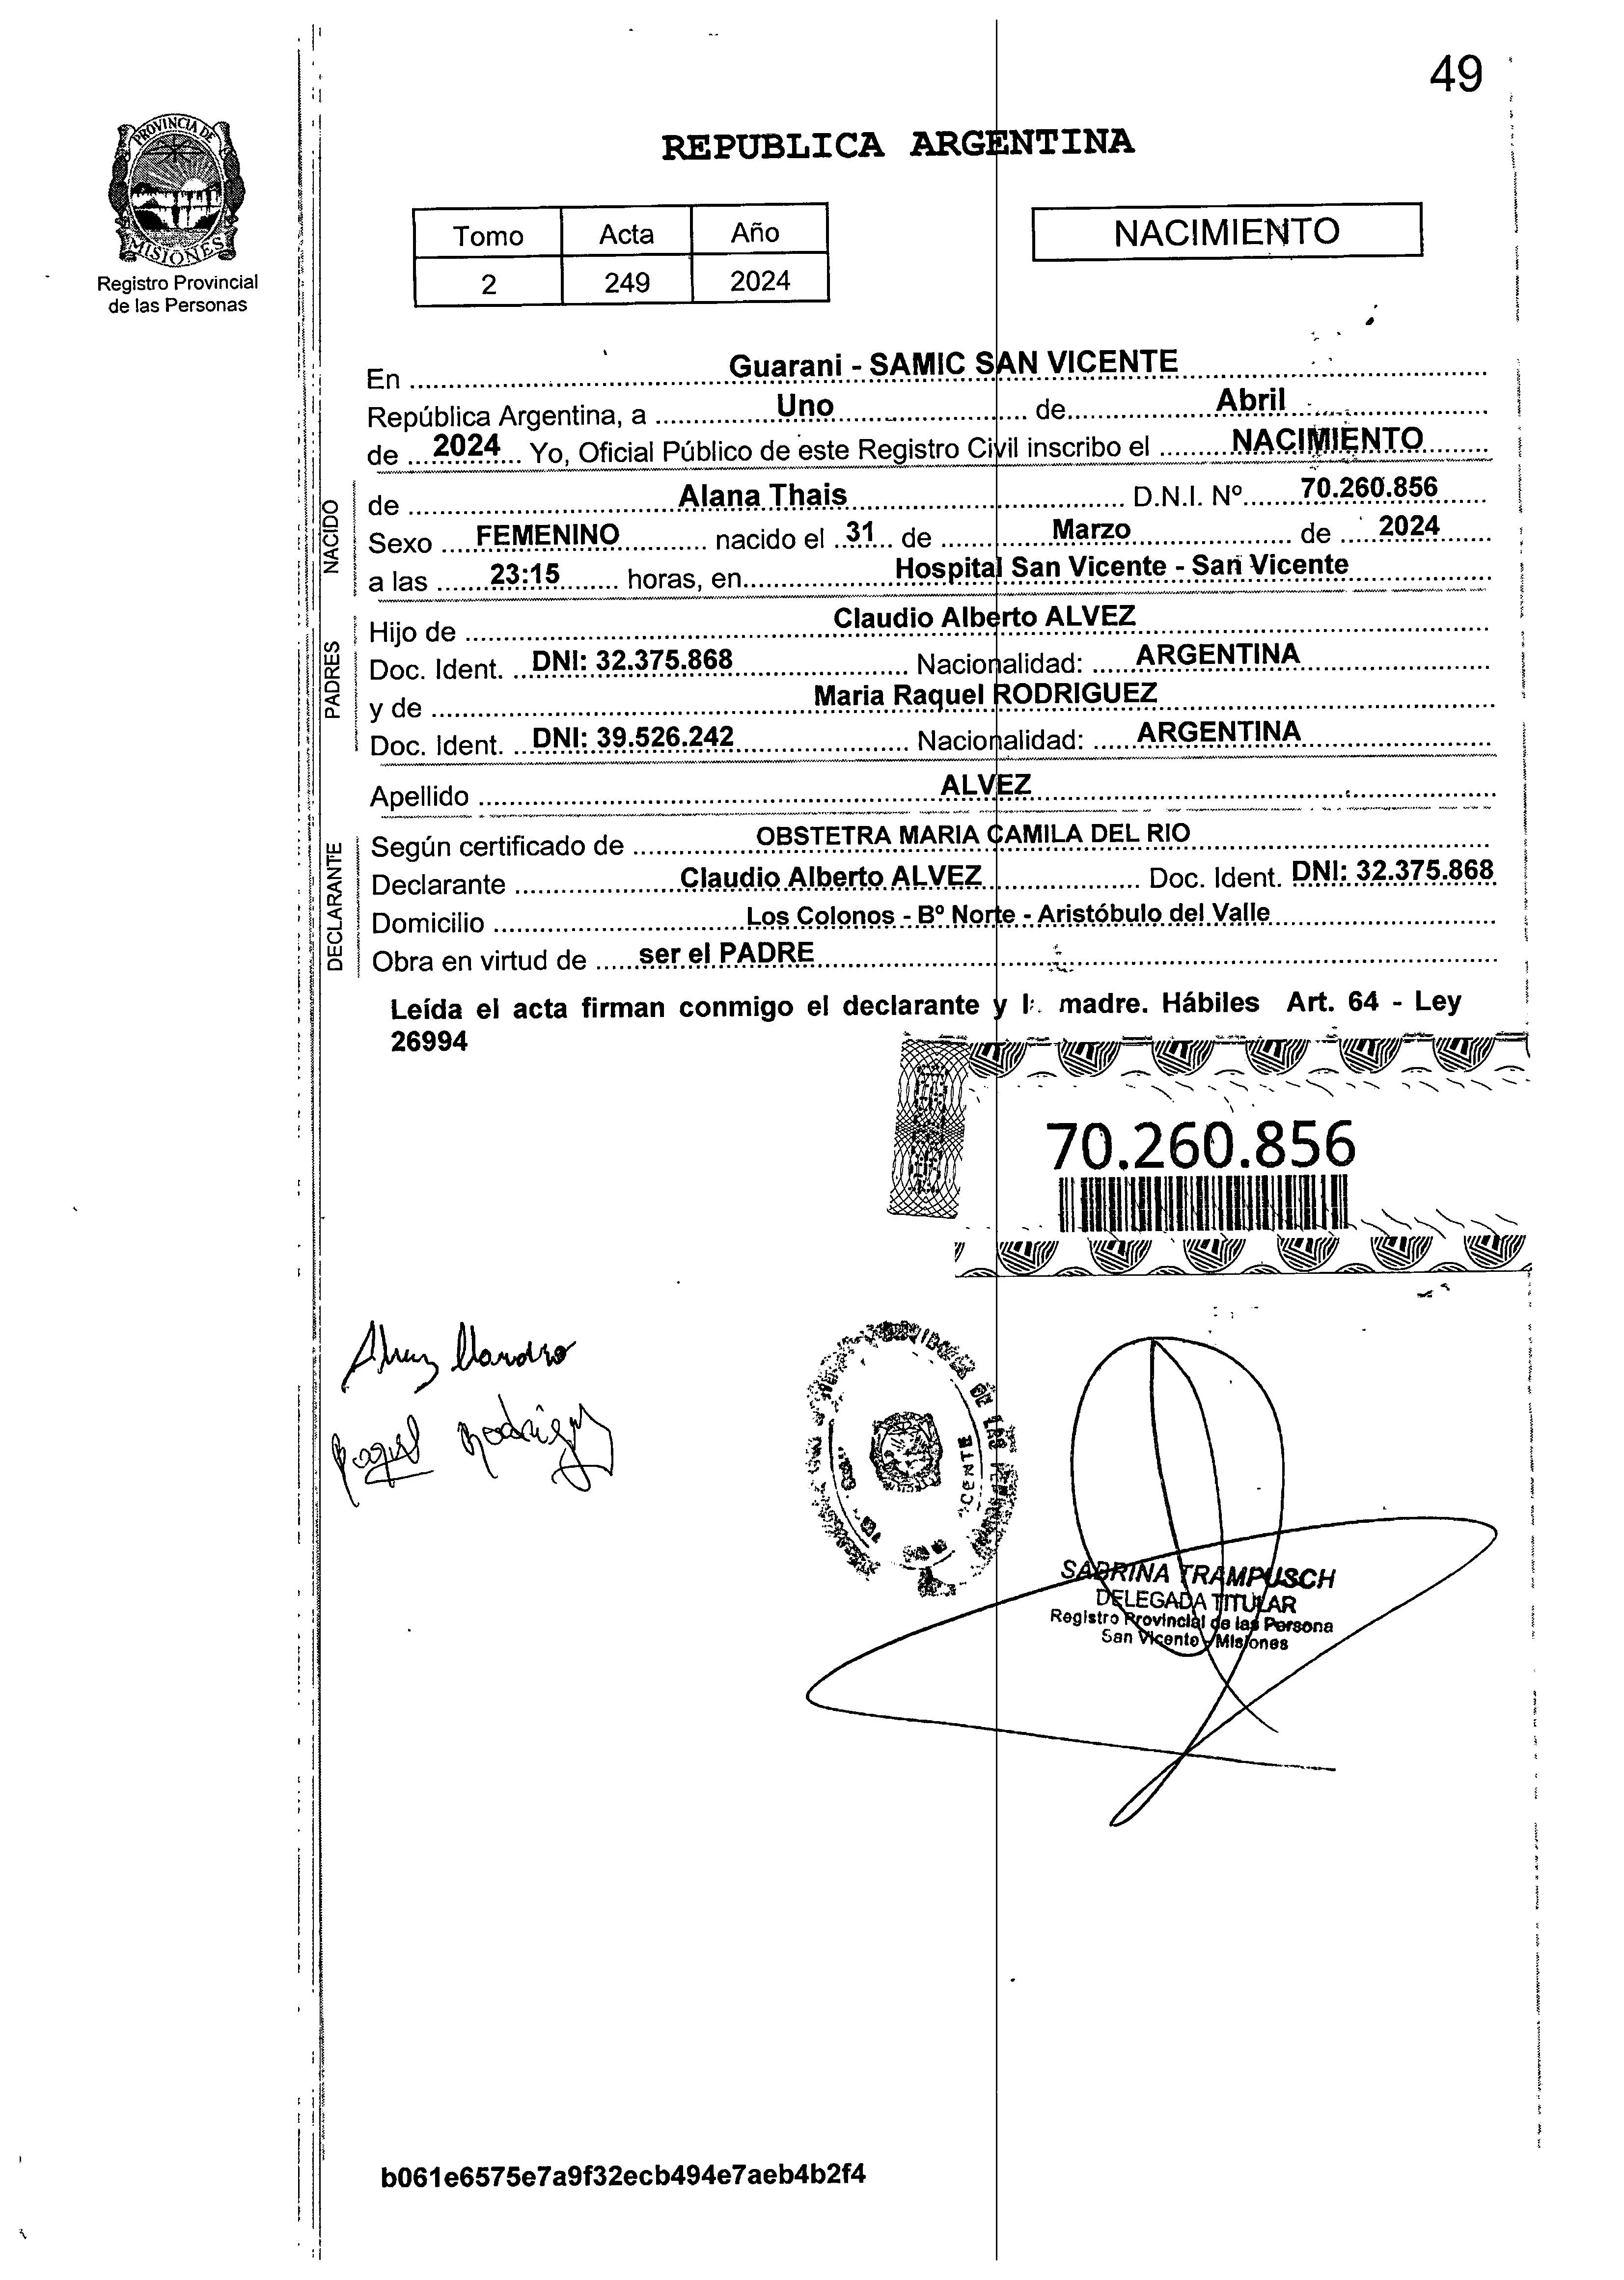 49
PROVINCIA DE
MISIONES
Registro Provincial
de las Personas
REPUBLICA ARGENTINA
Tomo Acta Año
2 249 2024
NACIMIENTO
En Guarani - SAMIC SAN VICENTE
República Argentina, a Uno de Abril
de 2024 Yo, Oficial Público de este Registro Civil inscribo el NACIMIENTO
NACIDO
de Alana Thais D.N.I. Nº 70.260.856
Sexo FEMENINO nacido el 31 de Marzo de 2024
a las 23:15 horas, en Hospital San Vicente - San Vicente
PADRES
Hijo de Claudio Alberto ALVEZ
Doc. Ident. DNI: 32.375.868 Nacionalidad: ARGENTINA
y de Maria Raquel RODRIGUEZ
Doc. Ident. DNI: 39.526.242 Nacionalidad: ARGENTINA
Apellido ALVEZ
DECLARANTE
Según certificado de OBSTETRA MARIA CAMILA DEL RIO
Declarante Claudio Alberto ALVEZ Doc. Ident. DNI: 32.375.868
Domicilio Los Colonos - Bº Norte - Aristóbulo del Valle
Obra en virtud de ser el PADRE
Leída el acta firman conmigo el declarante y madre. Hábiles Art. 64 - Ley
26994
70.260.856
Raquel Rodriguez
DE LAS
CENTE
SABRINA TRAMPUSCH
DELEGADA TITULAR
Registro Provincial de las Persona
San Vicente - Misiones
b061e6575e7a9f32ecb494e7aeb4b2f4